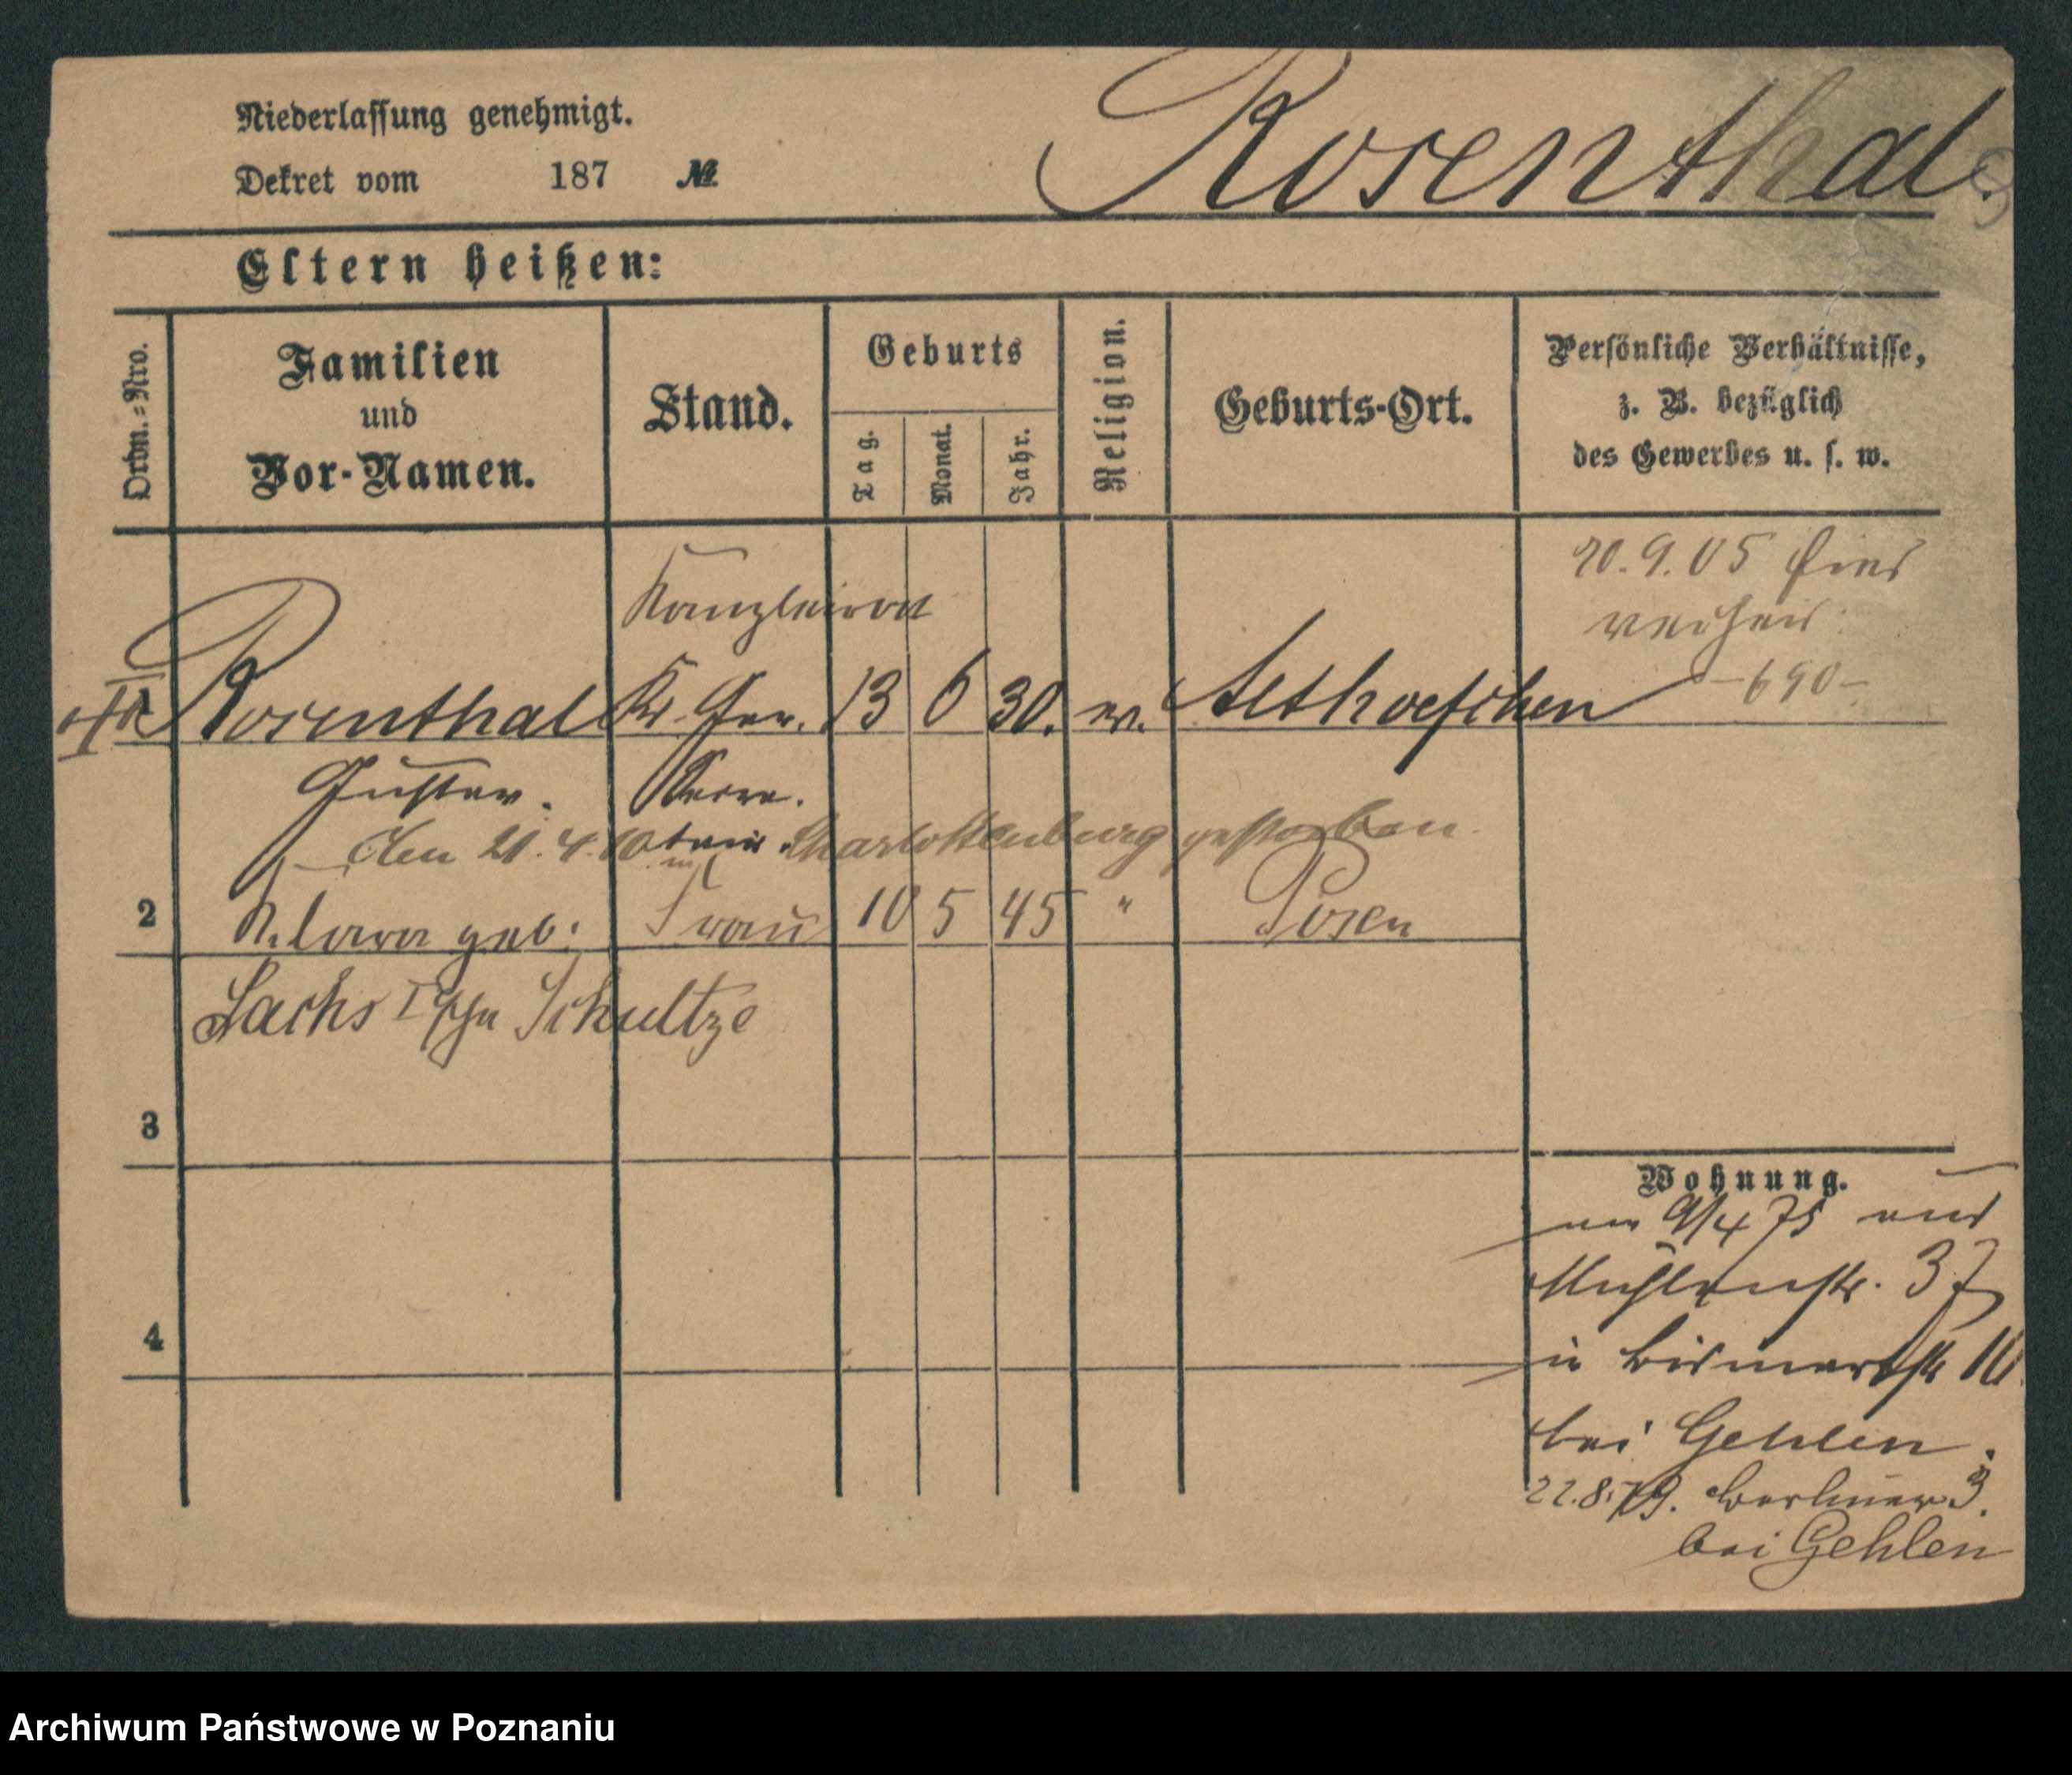 Niederlassung genehmigt.
Dekret vom 187 №
Rosenthal.
Eltern heißen:
Ordn.-Nro.
Familien und Vor-Namen.
Stand.
Geburts
Tag.
Monat.
Jahr.
Religion.
Geburts-Ort.
Persönliche Verhältnisse, z. B. bezüglich des Gewerbes u. s. w.
Kanzleirat
Rosenthal Kr. Ger. 13 6 30. ev. Althoefchen
Gustav.
den 21.4.10 in Charlottenburg gestorben.
2 Klara geb. Frau 10 5 45 " Posen
Sachs Schultze
3
4
20.9.05
-690-
Wohnung.
9/4 75 aus
Mühlenstr. 37
in Bismarkstr 10.
bei Gehlen.
22.8.79. Berliner 3.
bei Gehlen
Archiwum Państwowe w Poznaniu